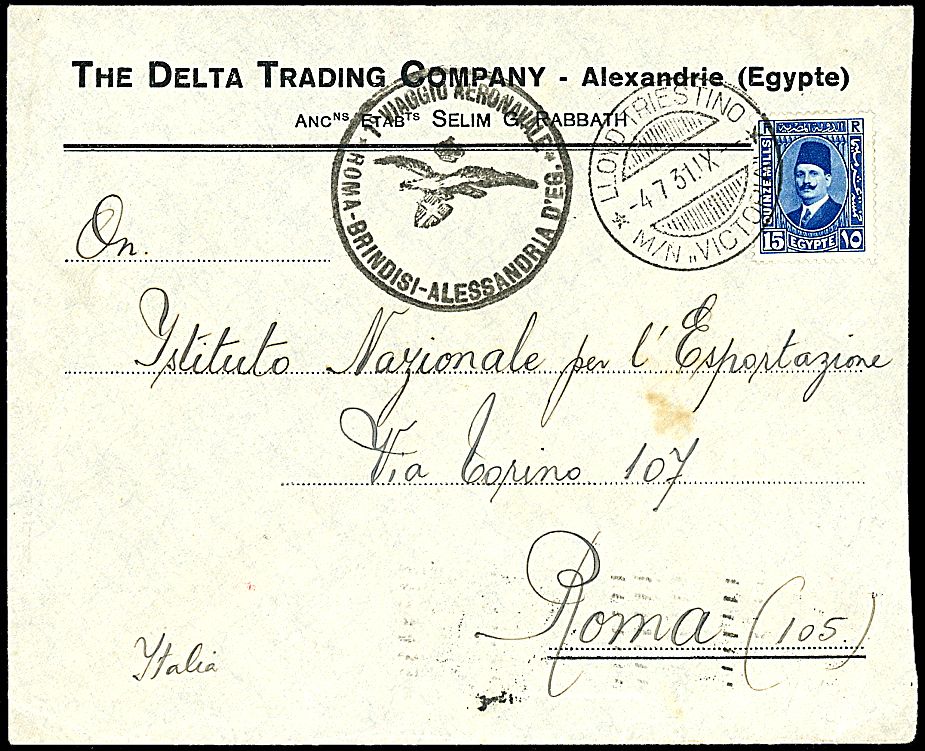 THE DELTA TRADING COMPANY - Alexandrie (Egypte)
ANCNS ETABTS SELIM G. RABBATH
1° VIAGGIO AERONAVALE
ROMA-BRINDISI-ALESSANDRIA D'EG.
LLOYD TRIESTINO
-4.7.31.IX
M/N „VICTORIA"
R R
QUINZE MILLS
15 EGYPTE ١٥
On.
Istituto Nazionale per l'Esportazione
Via Torino 107
Roma (105)
Italia